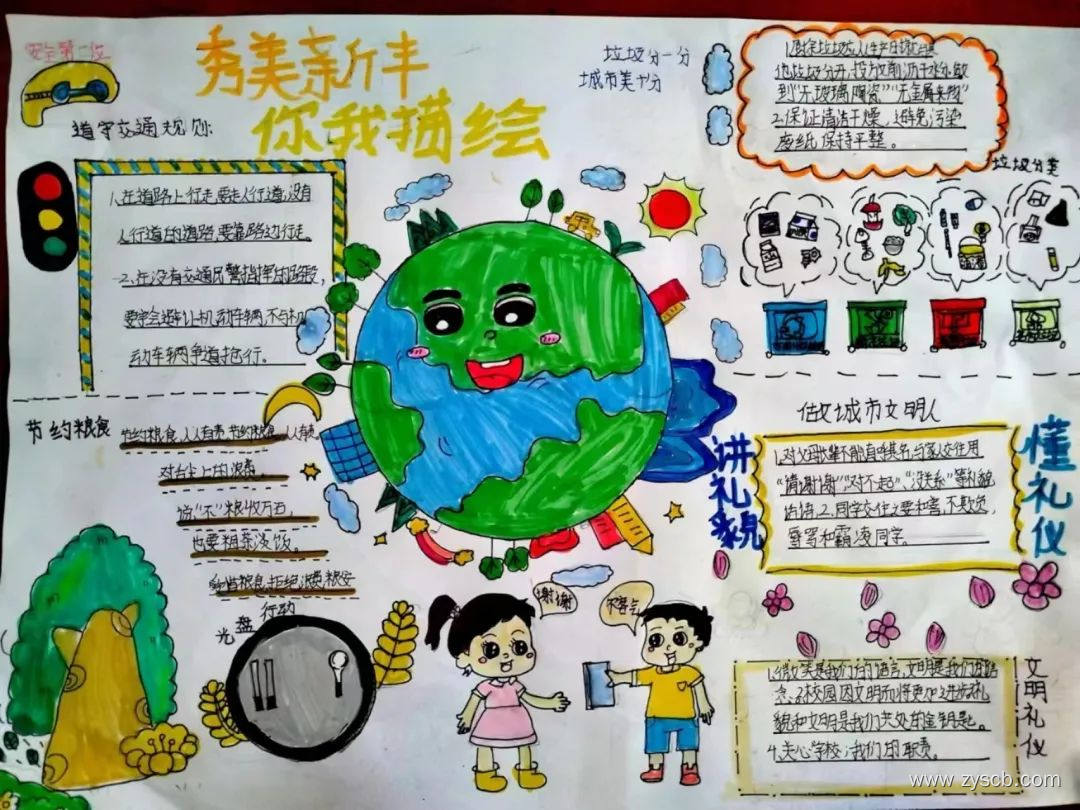 安全第一位
秀美新丰
你我描绘
垃圾分一分
城市美十分
遵守交通规则
1、在道路上行走,要走人行道;没有
人行道的道路,要靠路边行走。
2、在没有交通民警指挥的路段,
要学会避让机动车辆,不与机
动车辆争道抢行。
他垃圾分开,投放前沥干水分,做
到“无玻璃陶瓷”“无金属杂物”
2.保证清洁干燥,避免污染
废纸保持平整。
垃圾分类
节约粮食
节约粮食,人人有责,节约粮食,人人
对舌尖上的浪费
粮收万石,
也要粗茶淡饭。
光盘行动
做城市文明人
讲礼貌
懂礼仪
1.对父母长辈不能直呼其名,与家人交往用
“请”“谢谢”“对不起”、“没关系”等礼貌
用语。2.同学交往之要和善,不欺负,
辱骂和霸凌同学。
谢谢
不客气
文明礼仪
1.微笑是我们的语言,文明是我们的信
念。2.校园因文明而将更加进步。3.礼
貌和文明是我们共处的金钥匙。
4.关心学校,我们的职责。
www.zyscb.com